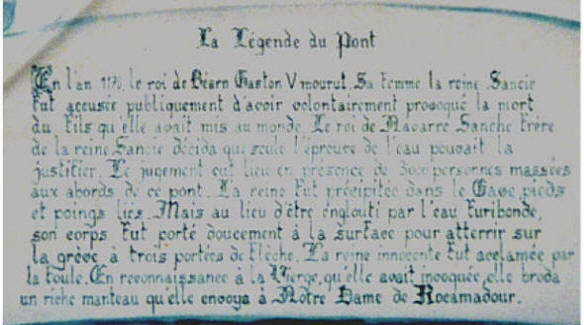 La Légende du Pont
En l'an 1170, le roi de Béarn Gaston V mourut. Sa femme la reine Sancie
fut accusée publiquement d'avoir volontairement provoqué la mort
du fils qu'elle avait mis au monde. Le roi de Navarre Sanche frère
de la reine Sancie décida que seule l'épreuve de l'eau pouvait la
justifier. Le jugement eut lieu en présence de 3000 personnes massées
aux abords de ce pont. La reine fut précipitée dans le Gave, pieds
et poings liés. Mais au lieu d'être englouti par l'eau furibonde,
son corps fut porté doucement à la surface pour atterrir sur
la grève, à trois portées de flèche. La reine innocente fut acclamée par
la foule. En reconnaissance à la Vierge, qu'elle avait invoquée, elle broda
un riche manteau qu'elle envoya à Notre Dame de Rocamadour.